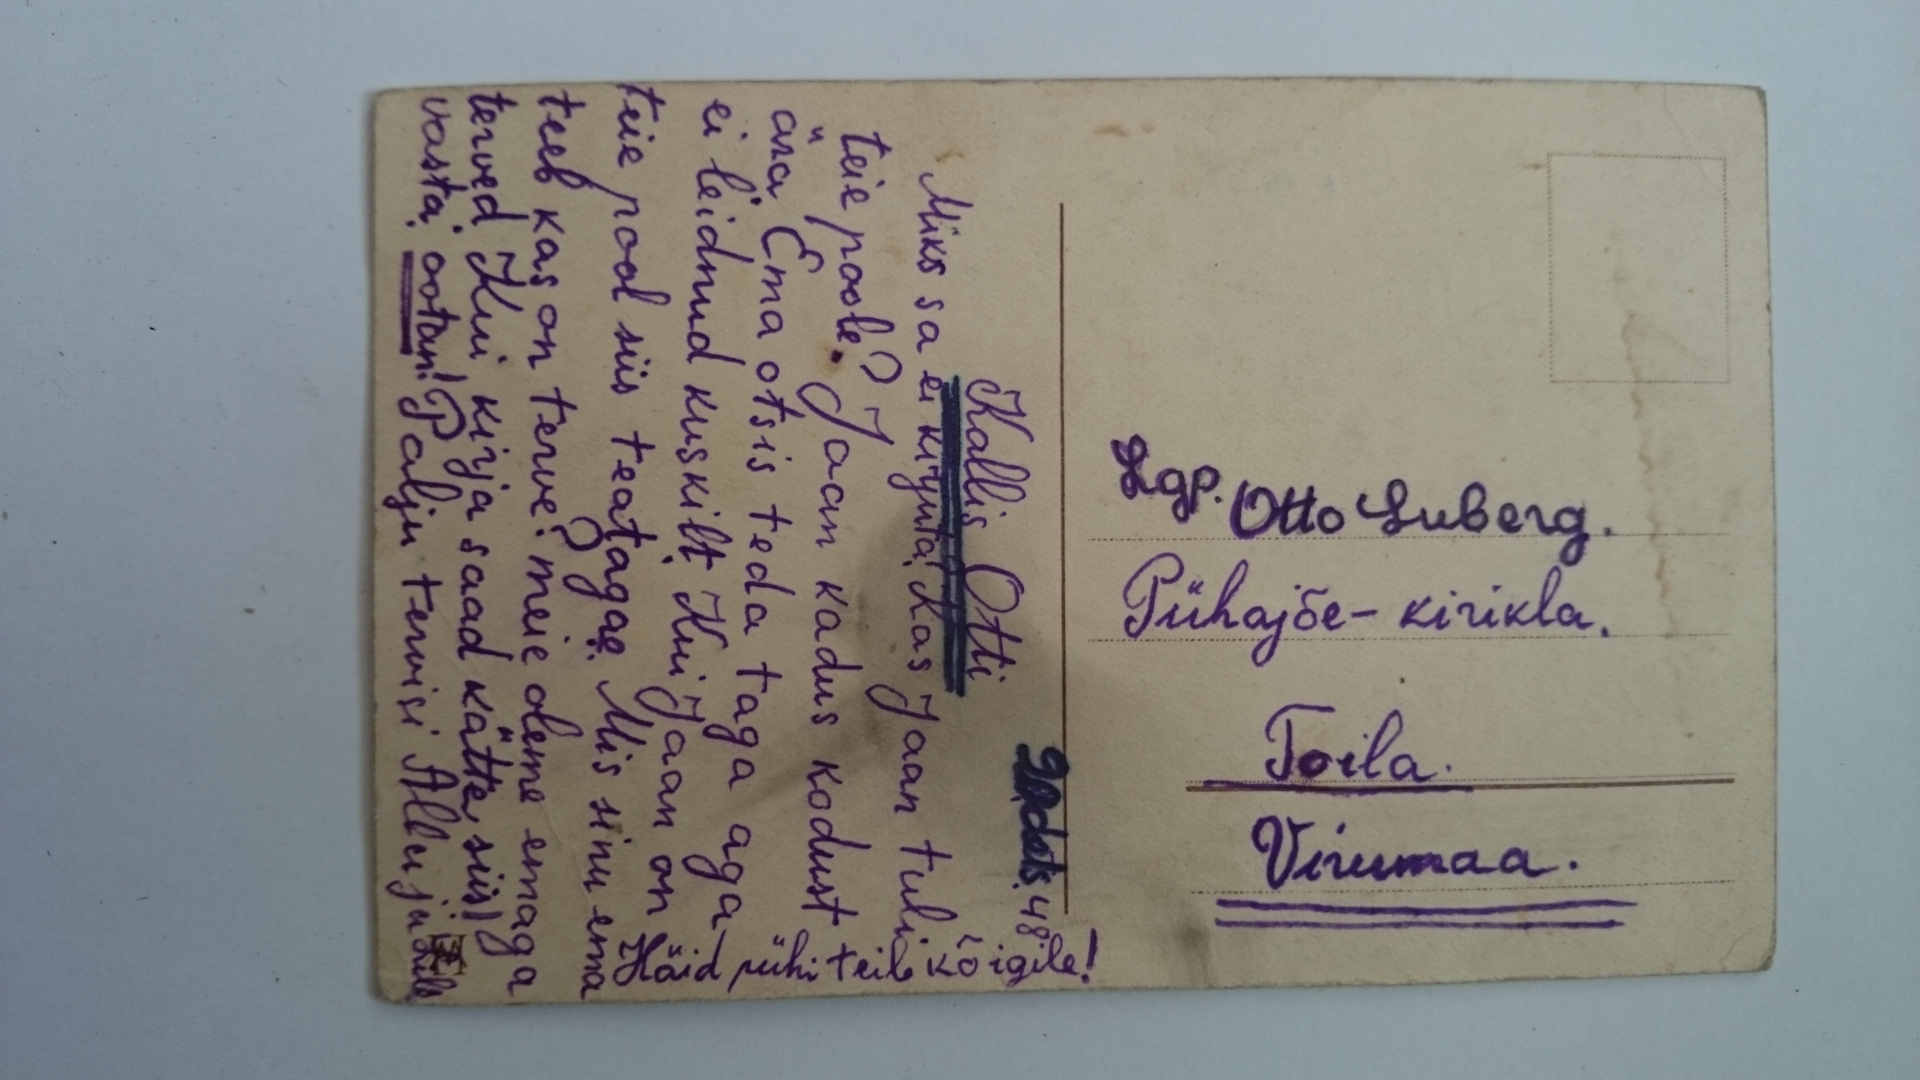 Kallis Otti
Miks sa ei kirjuta, kas Jaan tuli
teie poole? Jaan kadus kodust
ära, Ema otsis teda taga aga
ei leidnud kuskilt, Kui Jaan on
teie pool siis teatage. Mis sinu ema
teeb kas on terve? meie oleme emaga
terved, Kui kirja saad kätte, siis
vasta, ootan! Palju tervisi
dets. 48
Häid pühi teile kõigile!
Lgp. Otto Luberg.
Pühajõe-kirikla.
Toila.
Virumaa.